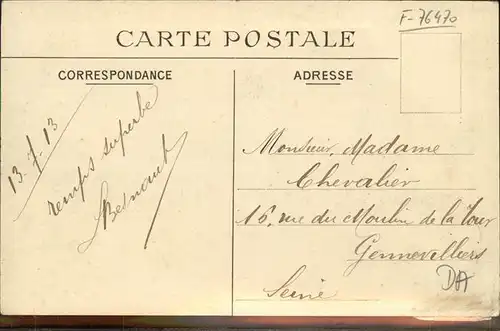 F-76470
CARTE POSTALE
CORRESPONDANCE
ADRESSE
13-7-13
temps superbe
Monsieur, Madame
Chevalier
16, rue du Moulin de la Tour
Gennevilliers
Seine
DA